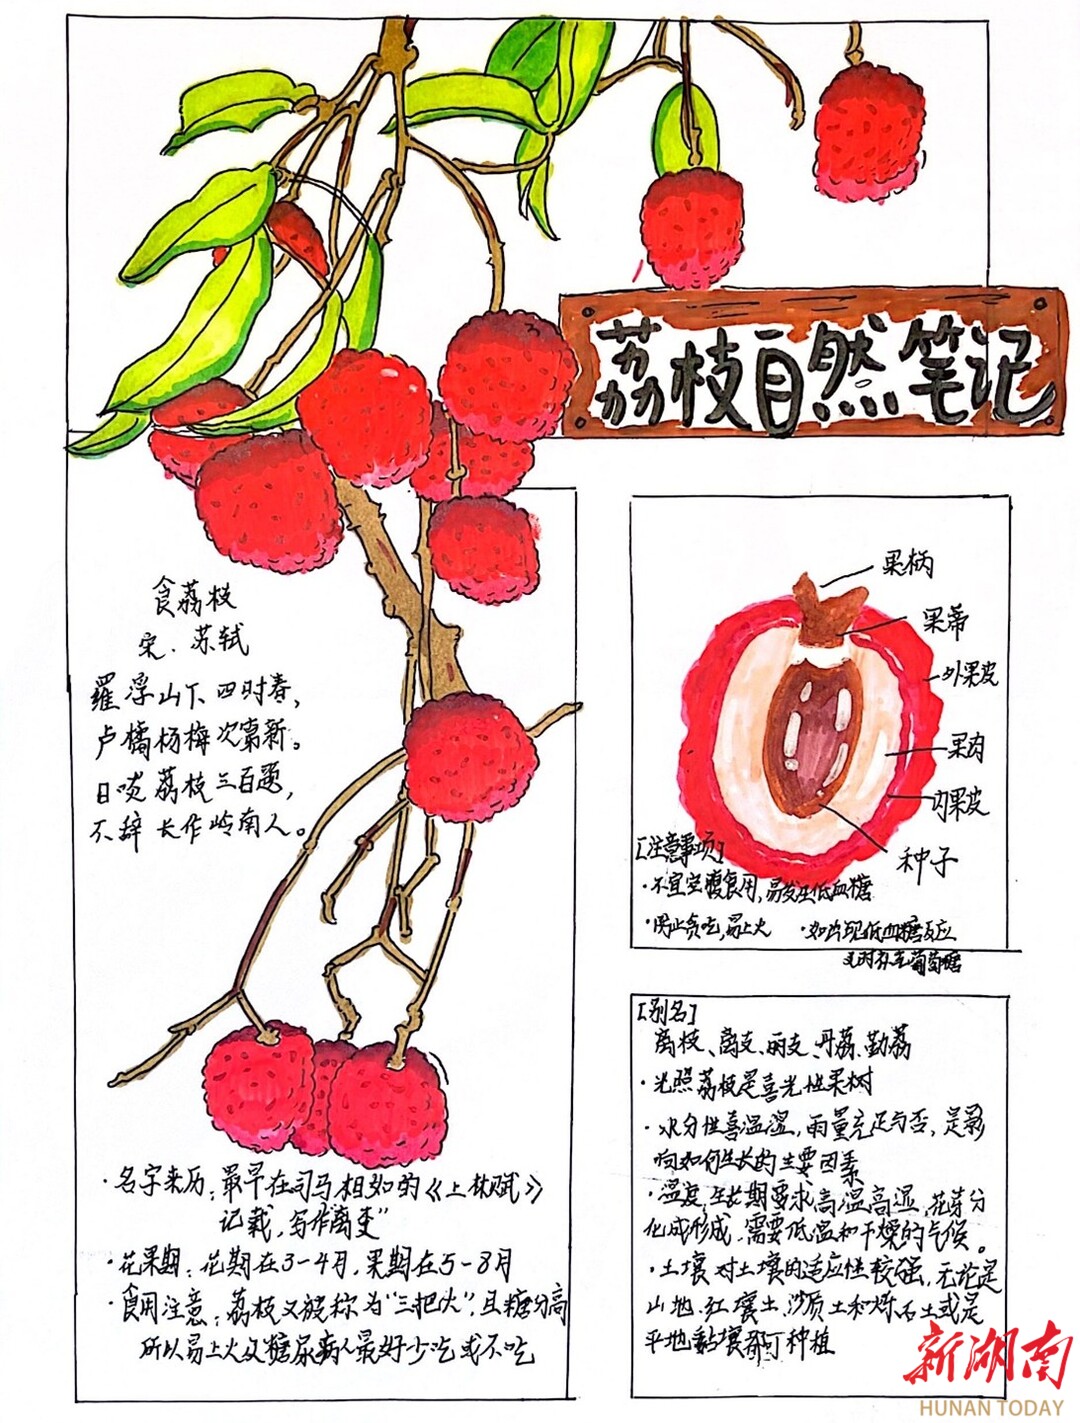 荔枝自然笔记
食荔枝
宋.苏轼
罗浮山下四时春,
卢橘杨梅次第新。
日啖荔枝三百颗,
不辞长作岭南人。
·名字来历:最早在司马相如的《上林赋》
记载,写作离支”
·花果期:花期在3-4月,果期在5-8月
·食用注意:荔枝又被称为“三把火”,且糖分高
所以易上火及糖尿病人最好少吃或不吃
果柄
果蒂
外果皮
果肉
内果皮
种子
[注意事项]
·不宜空腹食用,易发生低血糖
·防止贪吃,易上火
·如出现低血糖反应
及时补充葡萄糖
[别名]
离枝、离支、丽支、丹荔、勤荔
·光照荔枝是喜光性果树
·水分性喜温湿,雨量充足与否,是影
响如何生长的主要因素
·温度,生长期要求高温高湿,花芽分
化成形成,需要低温和干燥的气候。
·土壤对土壤的适应性较强,无论是
山地.红壤土,沙质土和砾石土或是
平地黏壤都可种植
新湖南
HUNAN TODAY